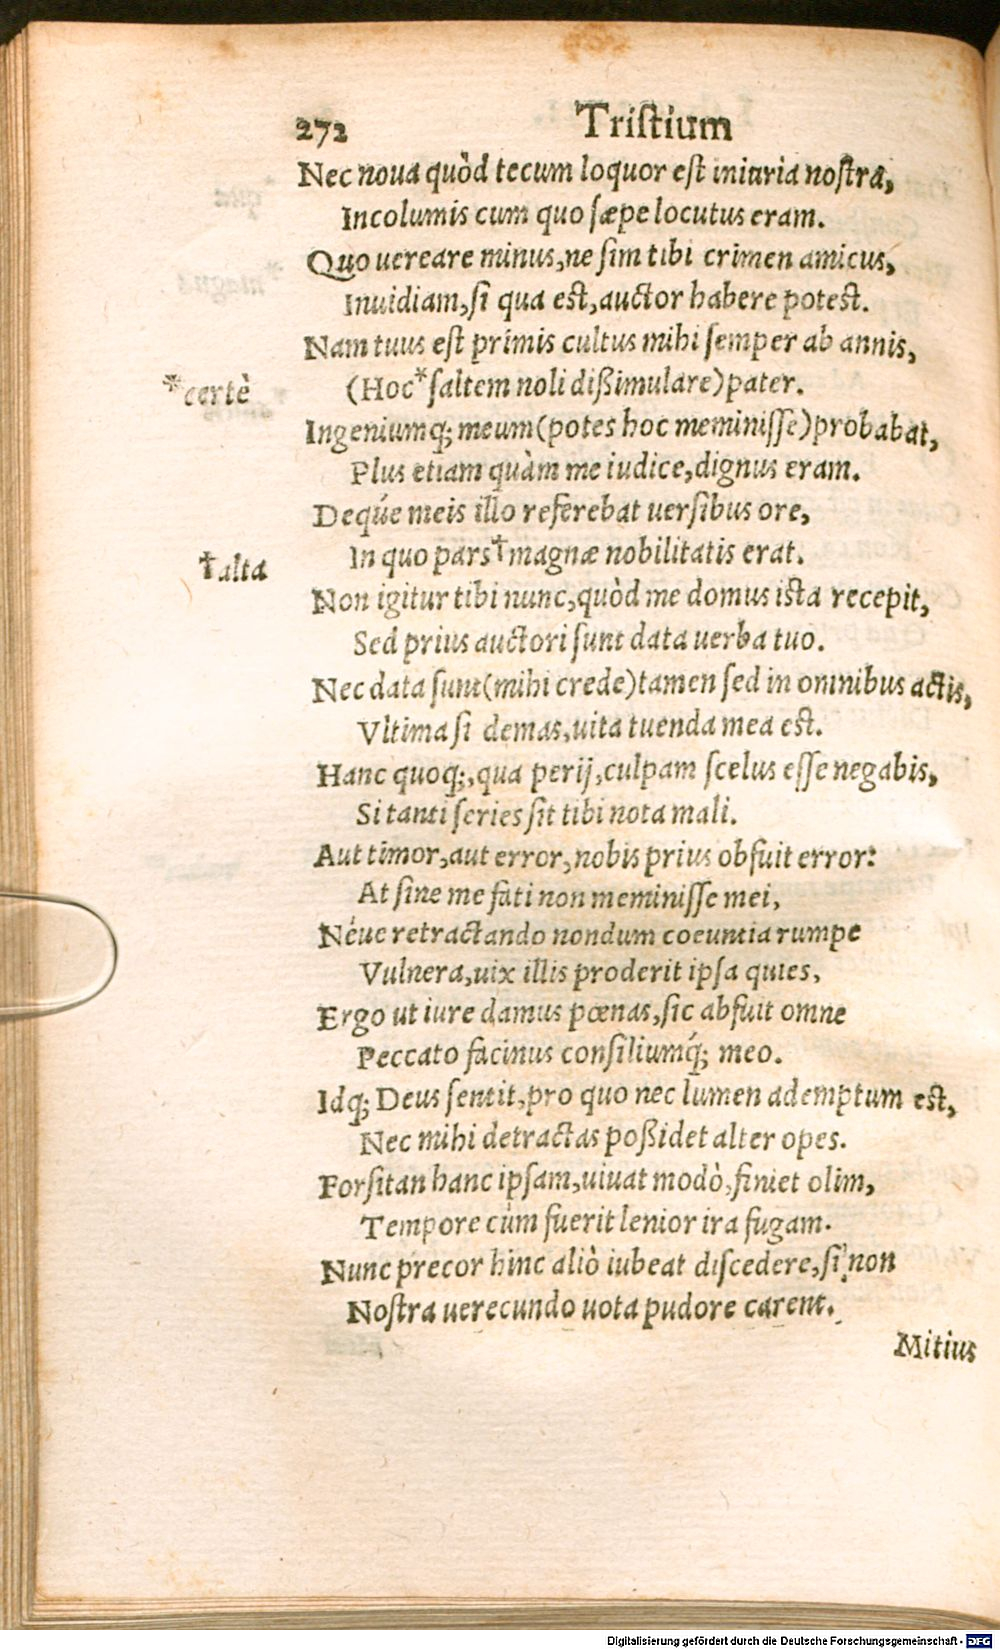 272 Tristium
Nec noua quòd tecum loquor est iniuria nostra,
Incolumis cum quo sæpe locutus eram.
Quo uereare minus, ne sim tibi crimen amicus,
Inuidiam, si qua est, auctor habere potest.
Nam tuus est primis cultus mihi semper ab annis,
*certè
(Hoc* saltem noli dißimulare) pater.
Ingeniumq; meum (potes hoc meminisse) probabat,
Plus etiam quàm me iudice, dignus eram.
Deqúe meis illo referebat uersibus ore,
In quo pars † magnæ nobilitatis erat.
†alta
Non igitur tibi nunc, quòd me domus ista recepit,
Sed prius auctori sunt data uerba tuo.
Nec data sunt (mihi crede) tamen sed in omnibus actis,
Vltima si demas, uita tuenda mea est.
Hanc quoq;, qua perij, culpam scelus esse negabis,
Si tanti series sit tibi nota mali.
Aut timor, aut error, nobis prius obfuit error:
At sine me fati non meminisse mei,
Néue retractando nondum coeuntia rumpe
Vulnera, uix illis proderit ipsa quies,
Ergo ut iure damus pœnas, sic abfuit omne
Peccato facinus consiliumq́; meo.
Idq; Deus sentit, pro quo nec lumen ademptum est,
Nec mihi detractas poßidet alter opes.
Forsitan hanc ipsam, uiuat modò, finiet olim,
Tempore cùm fuerit lenior ira fugam.
Nunc precor hinc aliò iubeat discedere, si non
Nostra uerecundo uota pudore carent.
Mitius
Digitalisierung gefördert durch die Deutsche Forschungsgemeinschaft - DFG